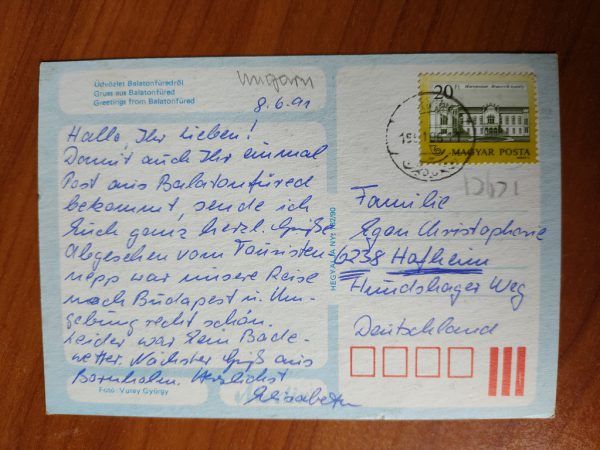 Üdvözlet Balatonfüredről
Gruss aus Balatonfüred
Greetings from Balatonfüred
Ungarn
8.6.91
Hallo, Ihr Lieben!
Damit auch Ihr einmal
Post aus Balatonfüred
bekommt, sende ich
Euch ganz herzl. Grüße
Abgesehen vom Touristen-
nepp war unsere Reise
nach Budapest u. Um-
gebung recht schön.
Leider war kein Bade-
wetter. Nächster Gruß aus
Bornholm. Herzlichst
Elisabeth
Fotó: Vurey György
HEGYALJA NY.
20 Ft
MAGYAR POSTA
Familie
Egon
6238 Hofheim
Hundshager Weg
Deutschland